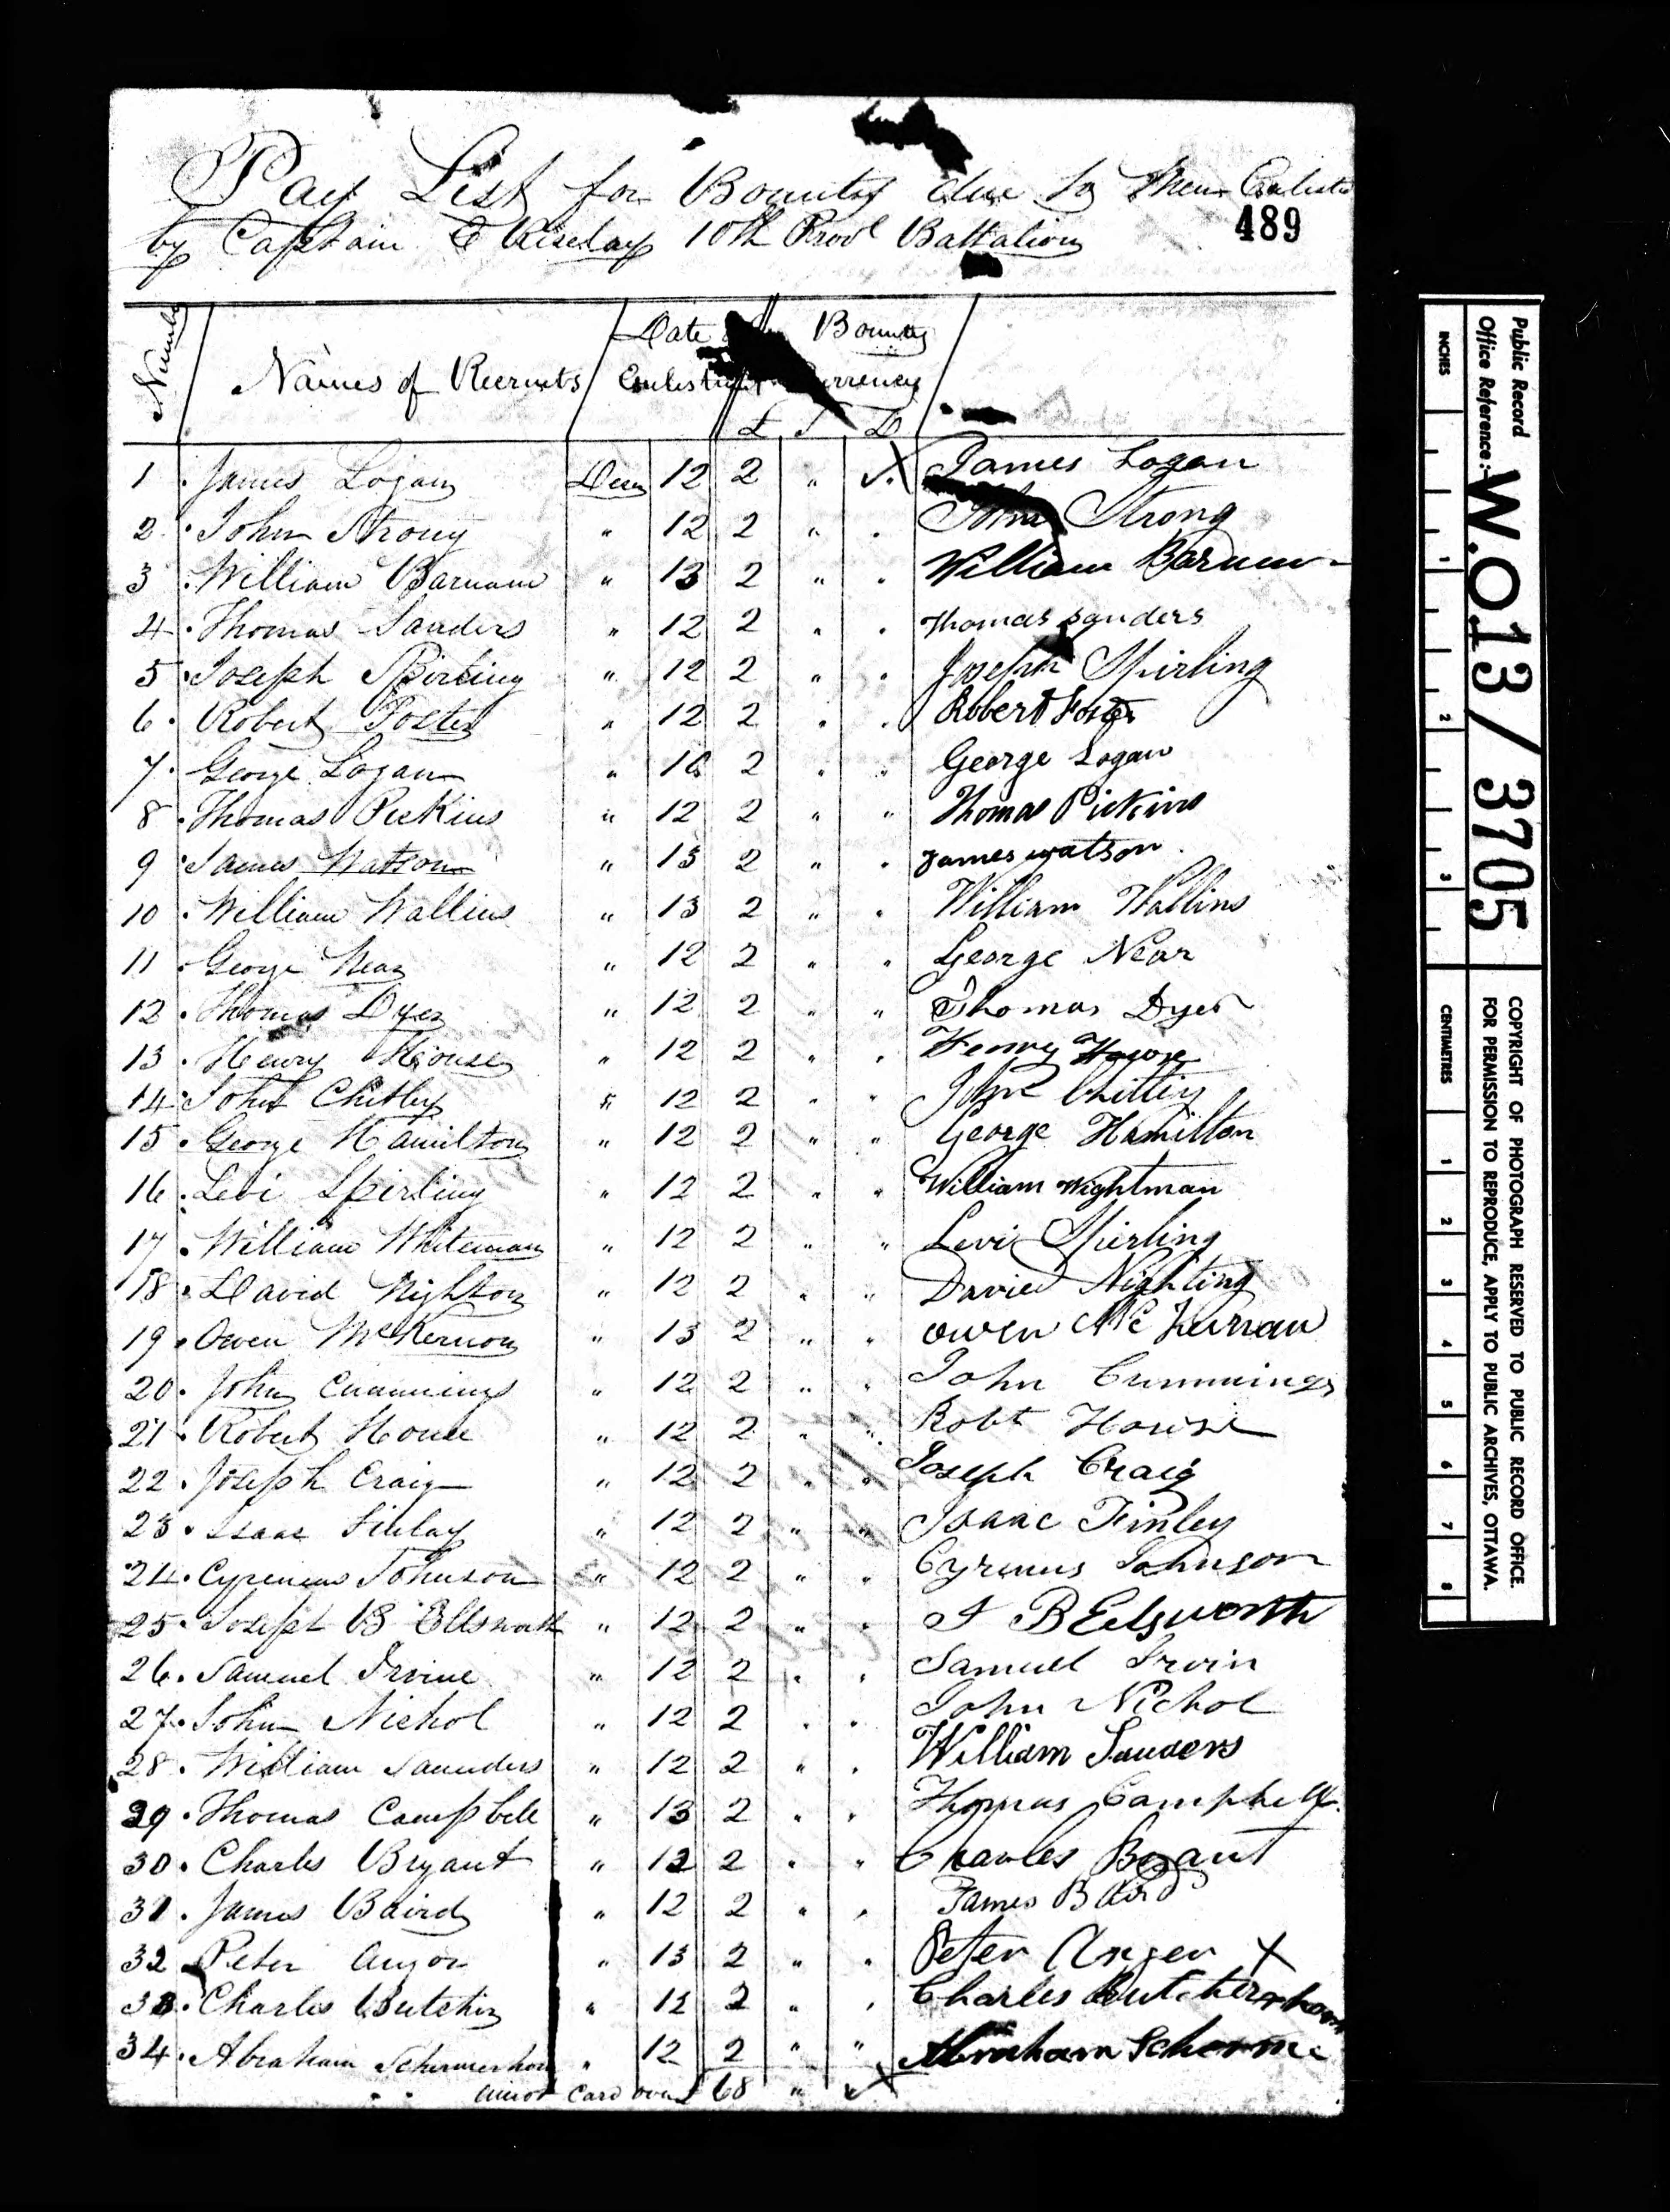 Pay List for Bounty due to Men Enlisted
by Captain E Riselay 10th Provl Battalion
489
Number
Names of Recruits
Date of Enlistment
Bounty Currency
£ S D
1 James Logan Decr 12 2 " " James Logan
2 John Strong " 12 2 " " John Strong
3 William Barnam " 13 2 " " William Barnum
4 Thomas Sanders " 12 2 " " Thomas Sanders
5 Joseph Spirling " 12 2 " " Joseph Spirling
6 Robert Foster " 12 2 " " Robert Foster
7 George Logan " 16 2 " " George Logan
8 Thomas Pickins " 12 2 " " Thomas Pickins
9 James Watson " 13 2 " " James watson
10 William Wallins " 13 2 " " William Wallins
11 George Near " 12 2 " " George Near
12 Thomas Dyer " 12 2 " " Thomas Dyer
13 Henry House " 12 2 " " Henry House
14 John Chitley " 12 2 " " John Chittey
15 George Hamilton " 12 2 " " George Hamilton
16 Levi Spirling " 12 2 " " William Wightman
17 William Whiteman " 12 2 " " Levi Spirling
18 David Nighton " 12 2 " " David Nighting
19 Owen McKernon " 13 2 " " Owen Mc
20 John Cummings " 12 2 " " John Cummings
21 Robert House " 12 2 " " Robt House
22 Joseph Craig " 12 2 " " Joseph Craig
23 Isaac Finlay " 12 2 " " Isaac Finley
24 Cyrenius Johnson " 12 2 " " Cyrenus Johnson
25 Joseph B Ellsworth " 12 2 " " J B Elsworth
26 Samuel Irvine " 12 2 " " Samuel Irvin
27 John Nichol " 12 2 " " John Nichol
28 William Saunders " 12 2 " " William Sauders
29 Thomas Campbell " 13 2 " " Thomas Campbell
30 Charles Bryant " 12 2 " " Charles Bryant
31 James Baird " 12 2 " " James Baird
32 Peter Angor " 13 2 " " Peter Anger X
33 Charles Butcher " 12 2 " " Charles Butcher
34 Abraham Schermerhorn " 12 2 " " Abraham Schermerhorn
Card over £ 68 " "
Public Record Office Reference:-
W.O.13/3705
INCHES
1
2
3
CENTIMETRES
1
2
3
4
5
6
7
8
COPYRIGHT OF PHOTOGRAPH RESERVED TO PUBLIC RECORD OFFICE.
FOR PERMISSION TO REPRODUCE, APPLY TO PUBLIC ARCHIVES, OTTAWA.